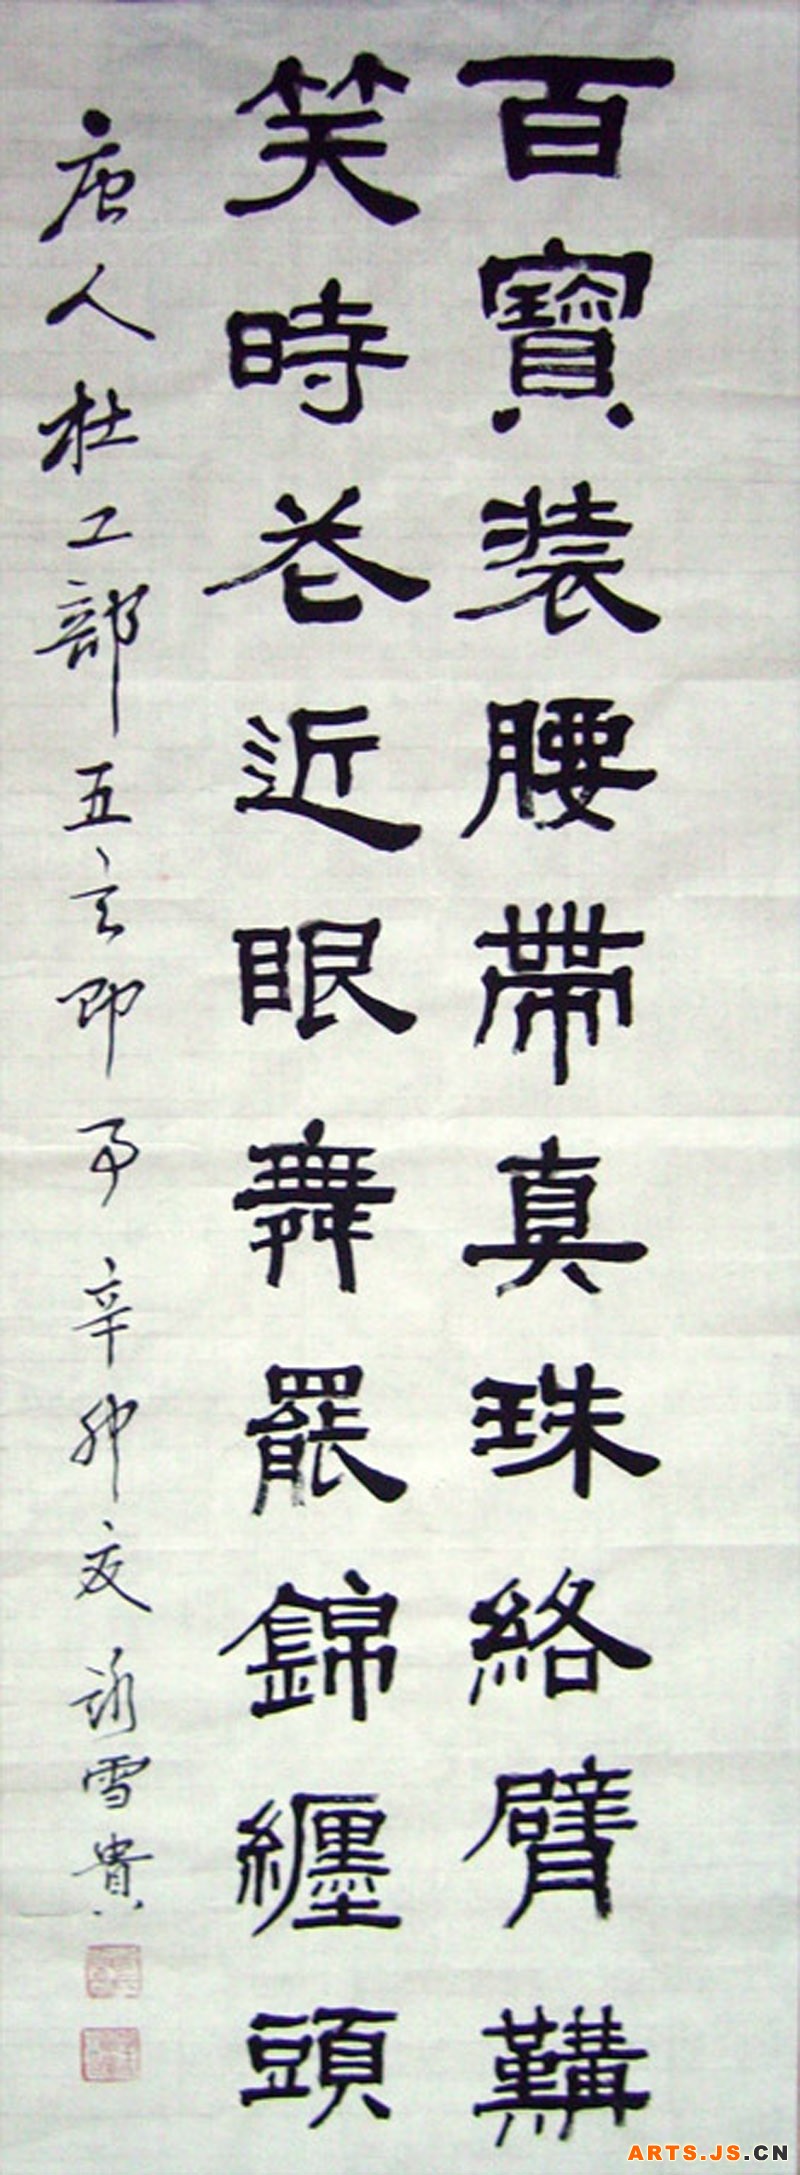 百寶裝腰帶真珠絡臂鞲
笑時花近眼舞罷錦纏頭
唐人杜工部五言即事辛卯夏詠雪貴
ARTS.JS.CN